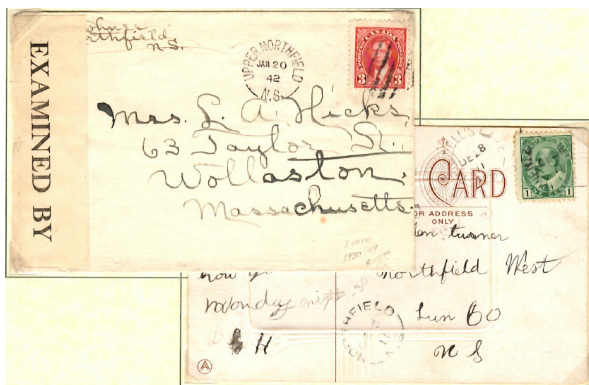 EXAMINED BY
Northfield
N.S.
UPPER NORTHFIELD
JAN 20
42
N.S.
CANADA
3 3
Mrs. L. A. Hicks
63 Taylor St.
Wollaston
Massachusetts
CARD
FOR ADDRESS
ONLY
1 1
turner
Northfield West
Lun Co
N S
Monday night
H
NORTHFIELD
N.S.